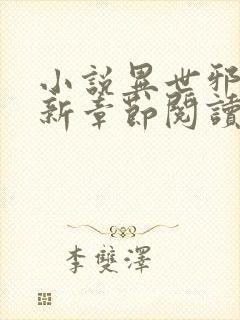 小說異世邪
新章節閱讀
李雙澤